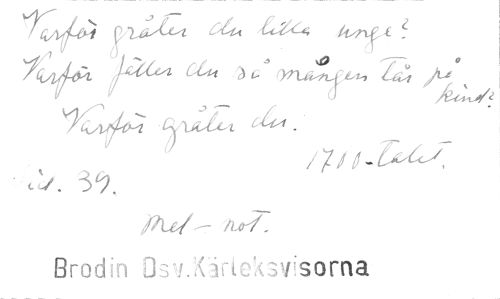 Varför gråter du lilla unge?
Varför fäller du så mången tår på
kind?
Varför gråter du.
1700-talet.
sid. 39.
Mel-not.
Brodin Osv.Kärleksvisorna